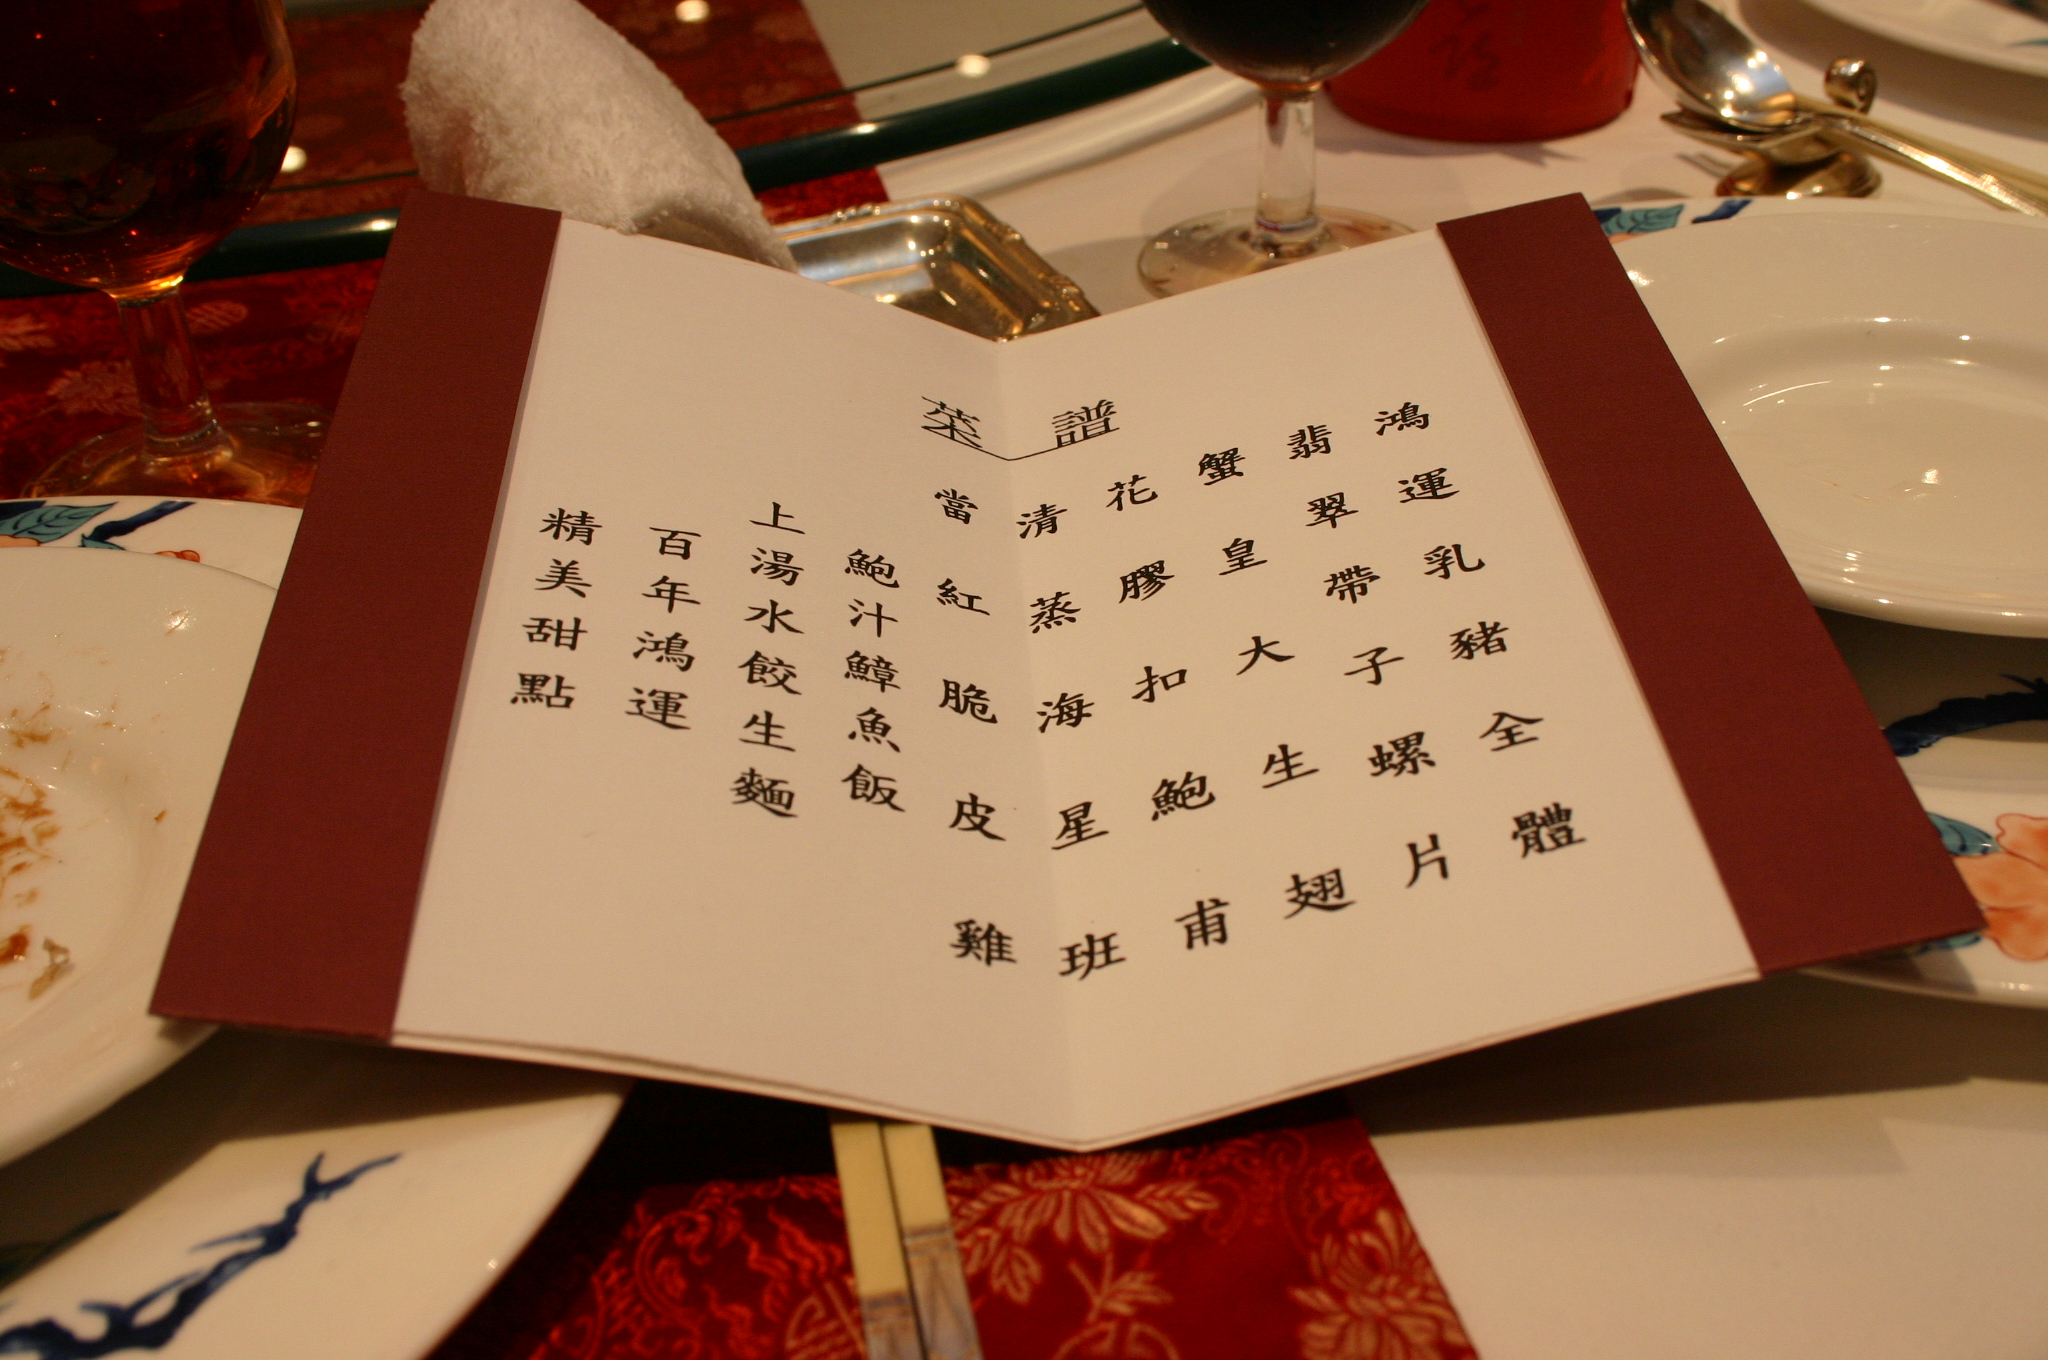 菜譜
鴻運乳豬全體
翡翠帶子螺片
蟹皇大生翅
花膠扣鮑甫
清蒸海星班
當紅脆皮雞
鮑汁鱆魚飯
上湯水餃生麵
百年鴻運
精美甜點